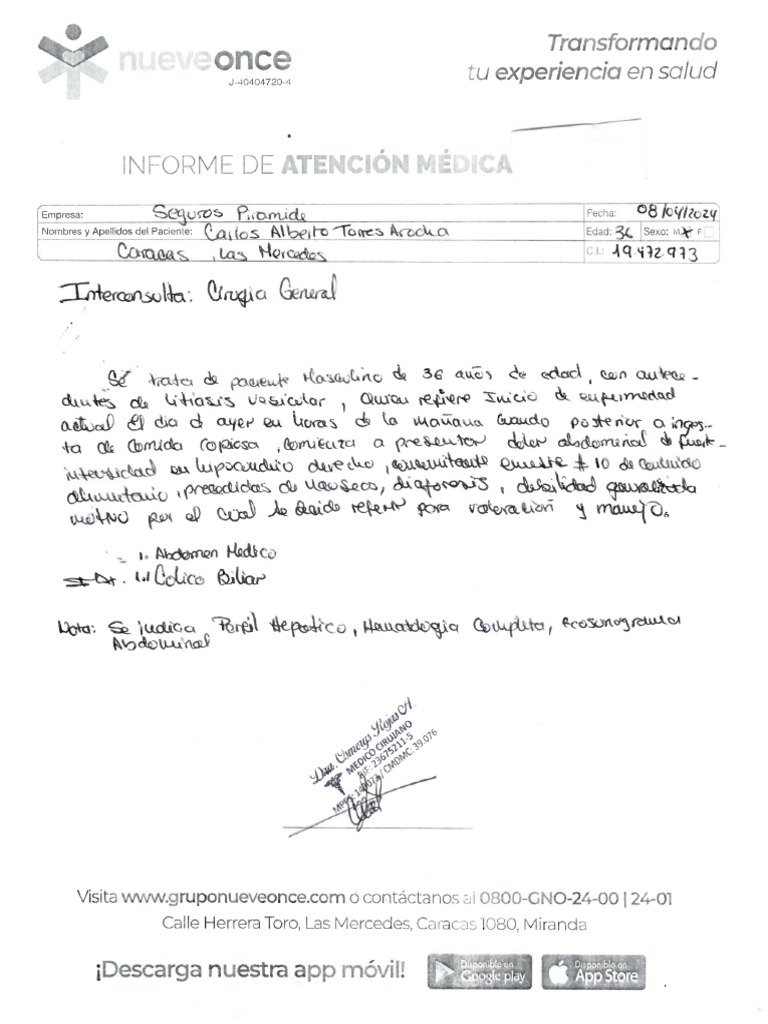 nueveonce
J-40404720-4
Transformando
tu experiencia en salud
INFORME DE ATENCIÓN MÉDICA
Empresa: Seguros Piramide Fecha: 08/04/2024
Nombres y Apellidos del Paciente: Carlos Alberto Torres Arocha Edad: 36 Sexo: M X F
Caracas, Las Mercedes C.I.: 19.472.973
Interconsulta: Cirugia General
Se trata de paciente Masculino de 36 años de edad, con antece-
dentes de litiasis vesicular, Quien refiere Inicio de enfermedad
actual El dia d ayer en horas de la mañana Cuando posterior a inges-
ta de Comida Copiosa, comienza a presentar dolor abdominal de fuerte
intensidad en hipocondrio derecho, concomitante emesis # 10 de Contenido
alimentario, precedidas de nauseas, diaforesis, debilidad generalizada
motivo por el cual se decide referir para valoración y manejo.
1. Abdomen Medico
1.1 Colico Biliar
Nota: Se indica Perfil Hepatico, Hematologia Completa, Ecosonograma
Abdominal
Dra. Rojas
MEDICO CIRUJANO
RIF: 23675211-5
CMDMC: 39.076
Visita www.gruponueveonce.com ó contáctanos al 0800-GNO-24-00 | 24-01
Calle Herrera Toro, Las Mercedes, Caracas 1080, Miranda
¡Descarga nuestra app móvil!
Disponible en
Google play
Disponible en
App Store